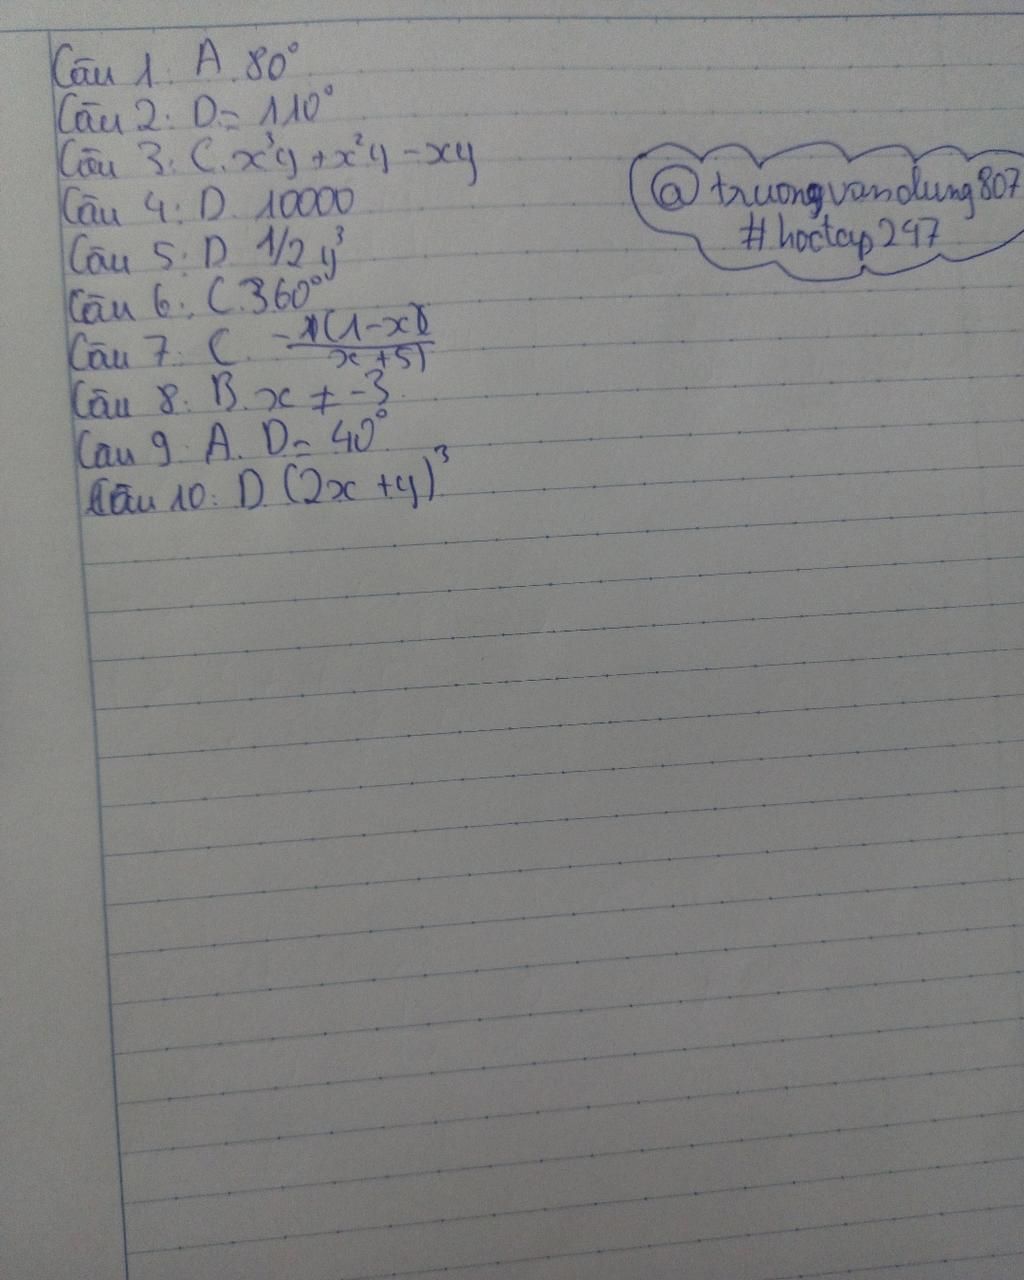 Câu 1: A. 80°
Câu 2: D = 110°
Câu 3: C. x³y + x²y - xy
Câu 4: D. 10000
Câu 5: D 1/2 y³
Câu 6: C. 360°
Câu 7: C. -1(1-x) / x+5
Câu 8: B. x ≠ -3
Câu 9: A. D = 40°
Câu 10: D (2x + y)³
@truongvandung807
#hoctap247